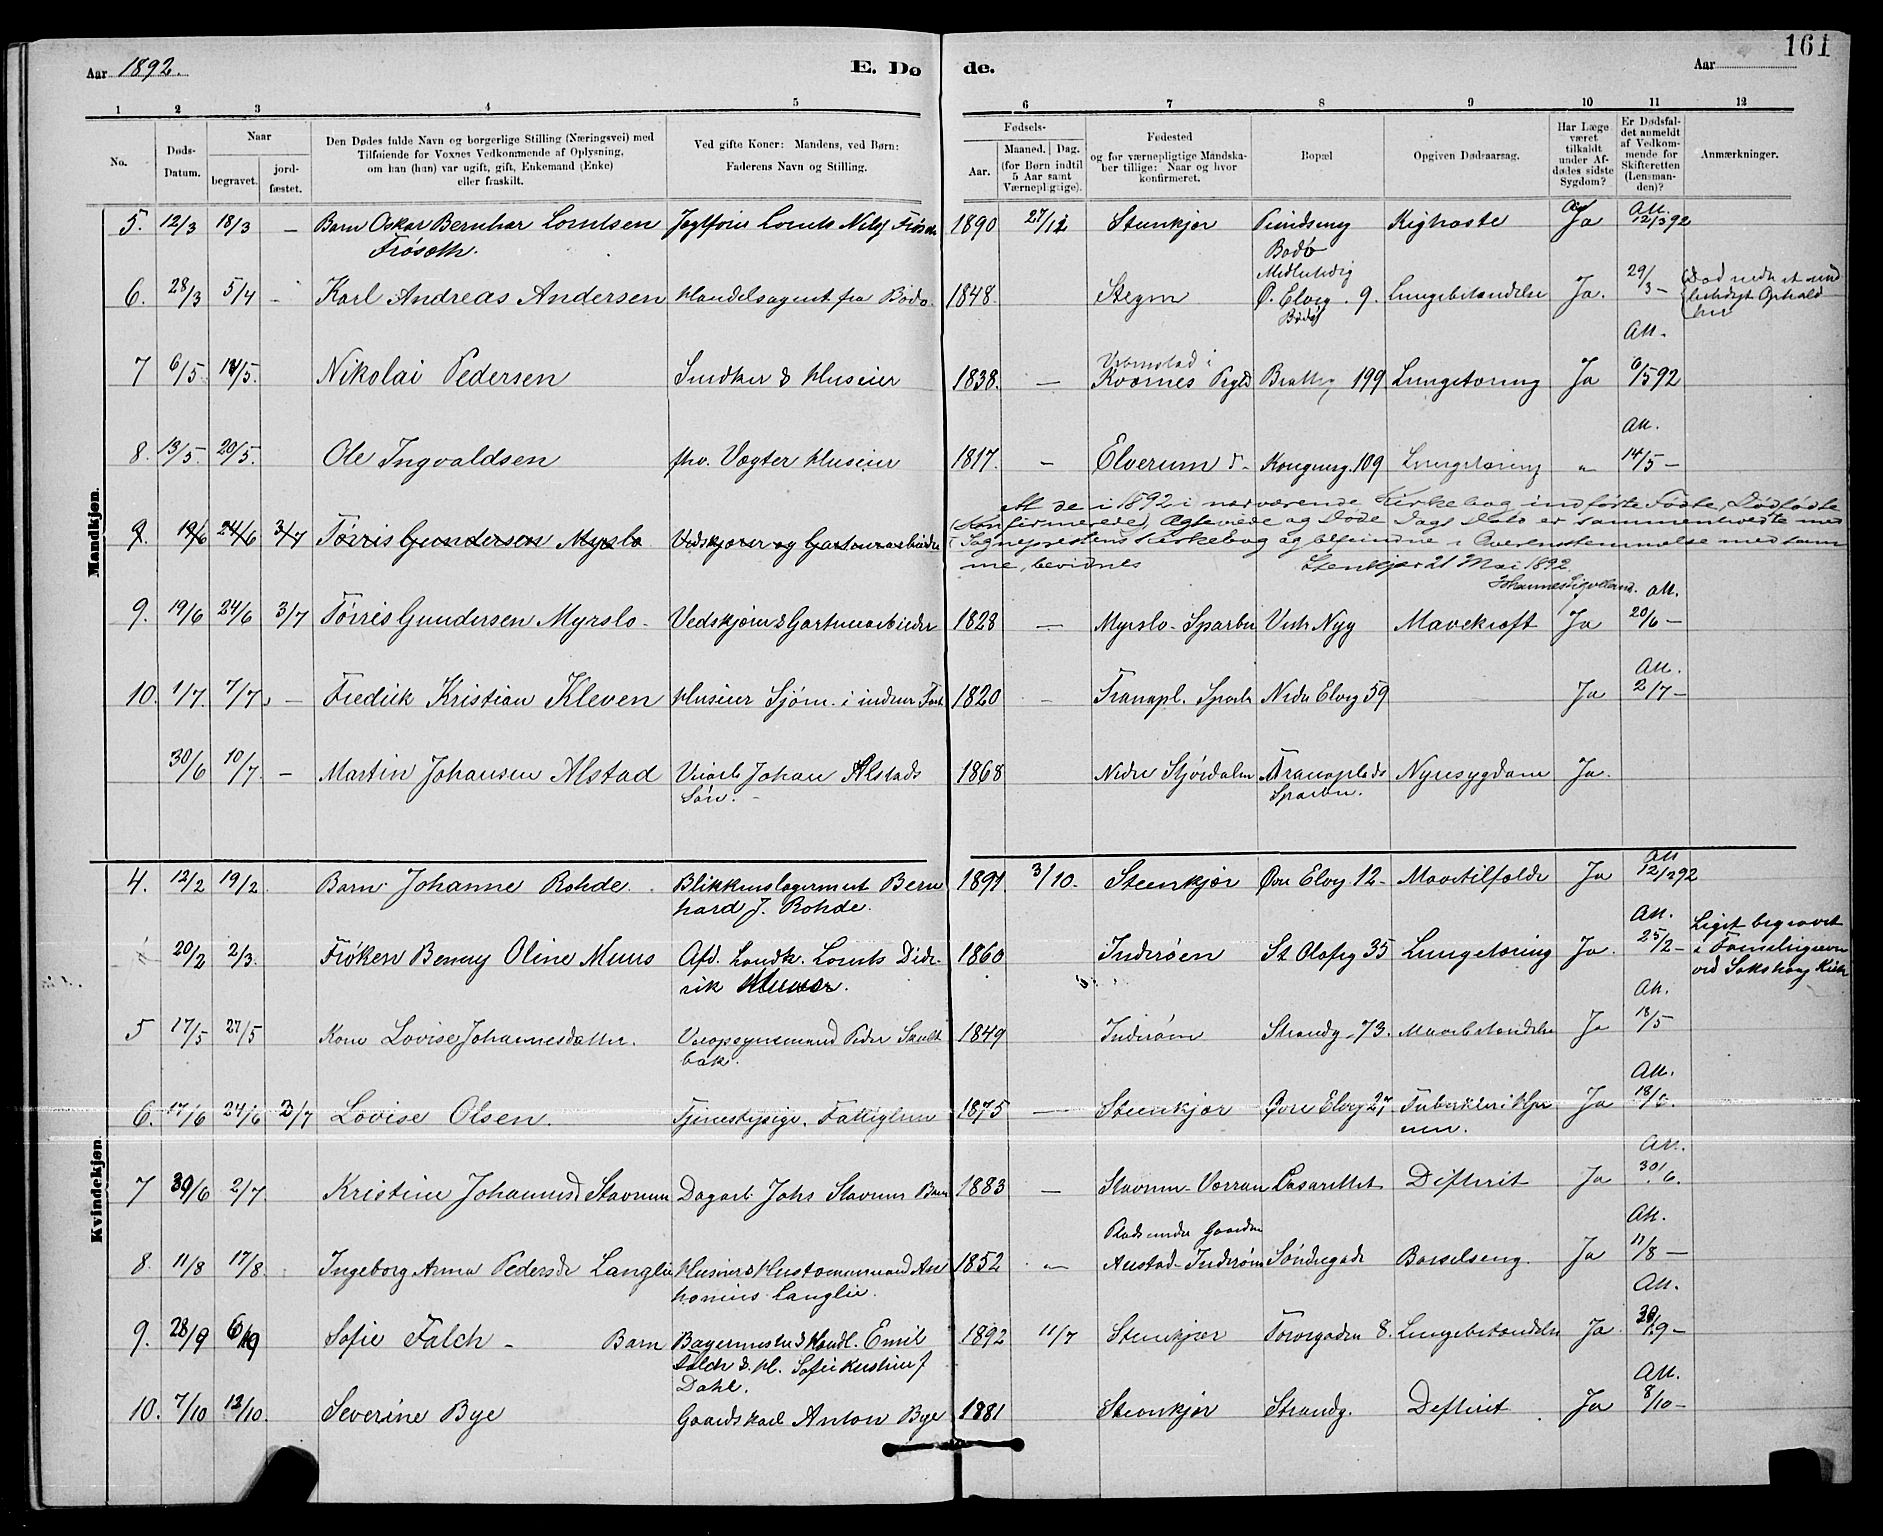 161
Aar 1892.
E. Dø
de.
Aar
1 2 3 4 5 6 7 8 9 10 11 12
No.
Døds-
Datum.
Naar
begravet.
jord-
fæstet.
Den Dødes fulde Navn og borgerlige Stilling (Næringsvei) med
Tilføiende for Voxnes Vedkommende af Oplysning,
om han (hun) var ugift, gift, Enkemand (Enke)
eller fraskilt.
Ved gifte Koner: Mandens, ved Børn:
Faderens Navn og Stilling.
Fødsels-
Aar.
Maaned. Dag.
(for Børn indtil
5 Aar samt
Værnepligtige).
Fødested
og for værnepligtige Mandska-
ber tillige: Naar og hvor
konfirmeret.
Bopæl
Opgiven Dødsaarsag.
Har Læge
været
tilkaldt
under Af-
dødes sidste
Sygdom?
Er Dødsfal-
det anmeldt
af Vedkom-
mende for
Skifteretten
(Lensman-
den)?
Anmærkninger.
Mandkjøn.
5. 12/3 18/3 — Barn Oskar Bernhar Lorntsen Jegtfører Lornts Nils 1890 27/12 Stenkjær Kighoste Ja Att. 12/3 92
Frøseth.
Bodø
6. 28/3 5/4 - Karl Andreas Andersen Handelsagent fra Bodø 1848. Ø. Elveg. 9. Lungebetændelse Ja. 29/3 — Død under et mid
lertidigt Ophold
Bodø her
Att.
7 6/5 14/5. Nikolai Pedersen Snedker & Huseier 1838. — Kvernes Pgjld 199 Lungetæring Ja 6/5 92
Att.
8. 13/5. 20/5. Ole Ingvaldsen fhv. Vægter Huseier 1817. - Elverum Kongensg. 109 Lungetæring " 14/5 —
At de i 1892 i nærværende Kirkebog indførte Fødte, Dødfødte
(Konfirmerede), Ægteviede og Døde Dags Dato er sammenholdte med
9. 19/6 24/6 3/7 Tørris Gundersen Myrslo Vedskjærer og Gartnerarbeider
Sogneprestens Kirkebog og befundne i Overensstemmelse med sam
me, bevidnes Stenkjær 21 Mai 1892.
Att.
9. 19/6 24/6 3/7 Tørris Gundersen Myrslo - Vedskjærer & Gartnerarbeider 1828 — Myrslo - Sparbu Vestre Nyg Mavekræft Ja 20/6 —
Att.
10. 1/7. 7/7. — Fredrik Kristian Kleven Huseier Sjøm. i indenr. Fart 1820 - Tranapl. Sparbu Nedre Elveg 59 Ja 2/7 —
30/6 10/7. — Martin Johansen Alstad Veiarb. Johan Alstads 1868 Nedre Stjørdalen Tranaplads Nyresygdom Ja.
Søn. — Sparbu.
Kvindekjøn.
Att
4. 12/2 19/2. Barn. Johanne Rohde. Blikkenslagermest Bern 1891 3/10. Steenkjær Øvre Elveg 12 - Mavetilfælde Ja 12/2 92
hard J. Rohde.
Att.
20/2 2/3. Frøken Benny Oline Muus Afd. Landh. Lornts Did- 1860 Inderøen St Olafsg 35 Lungetæring Ja. 25/2 — Liget begravet
i Familiegraven
rik Muus. ved Sakshaug Kirke
Att.
5 17/5 27/5 Kone Lovise Johannesdatter. Veiopsynsmand Peder 1849 Inderøen Strandg. 73. Mavebetændelse Ja 18/5
bak.
Att.
6. 17/6 24/6 3/7 Lovise Olsen. Tjenestepige. Fattiglem 1875 — Steenkjær Øvre Elveg 27 Tuberkler i Hjer Ja 18/6.
nen.
Att.
7 30/6 2/7 Kristine Johannesd Stavrum Dagarb. Johs Stavrum Barn 1883 — Stavrum - Værran Lasarettet Difterit Ja 30/6.
Plads under Gaarden Att.
8. 11/8 17/8. Ingeborg Anna Pedersdr Langlie Huseier & Husmand An 1852 " Austad - Inderøen Søndregade Barselseng. Ja 11/8 —
tonius Langlie.
Att.
9. 28/9 6/9 Sofie Falch — Barn Bagermester & Handl. Emil 1892 11/7 Stenkjær Torvegaden 8. Lungebetændelse Ja 29/9 —
Falch & H. Sofie Kirstine f
Dahl.
Att.
10. 7/10 12/10. Severine Bye Gaardskarl Anton Bye 1881 Steenkjær Strandg. Difterit Ja 8/10 —